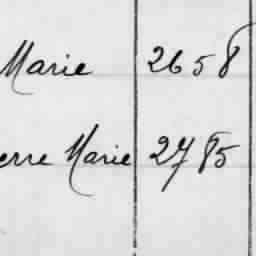 Marie 2658
erre Marie 2785